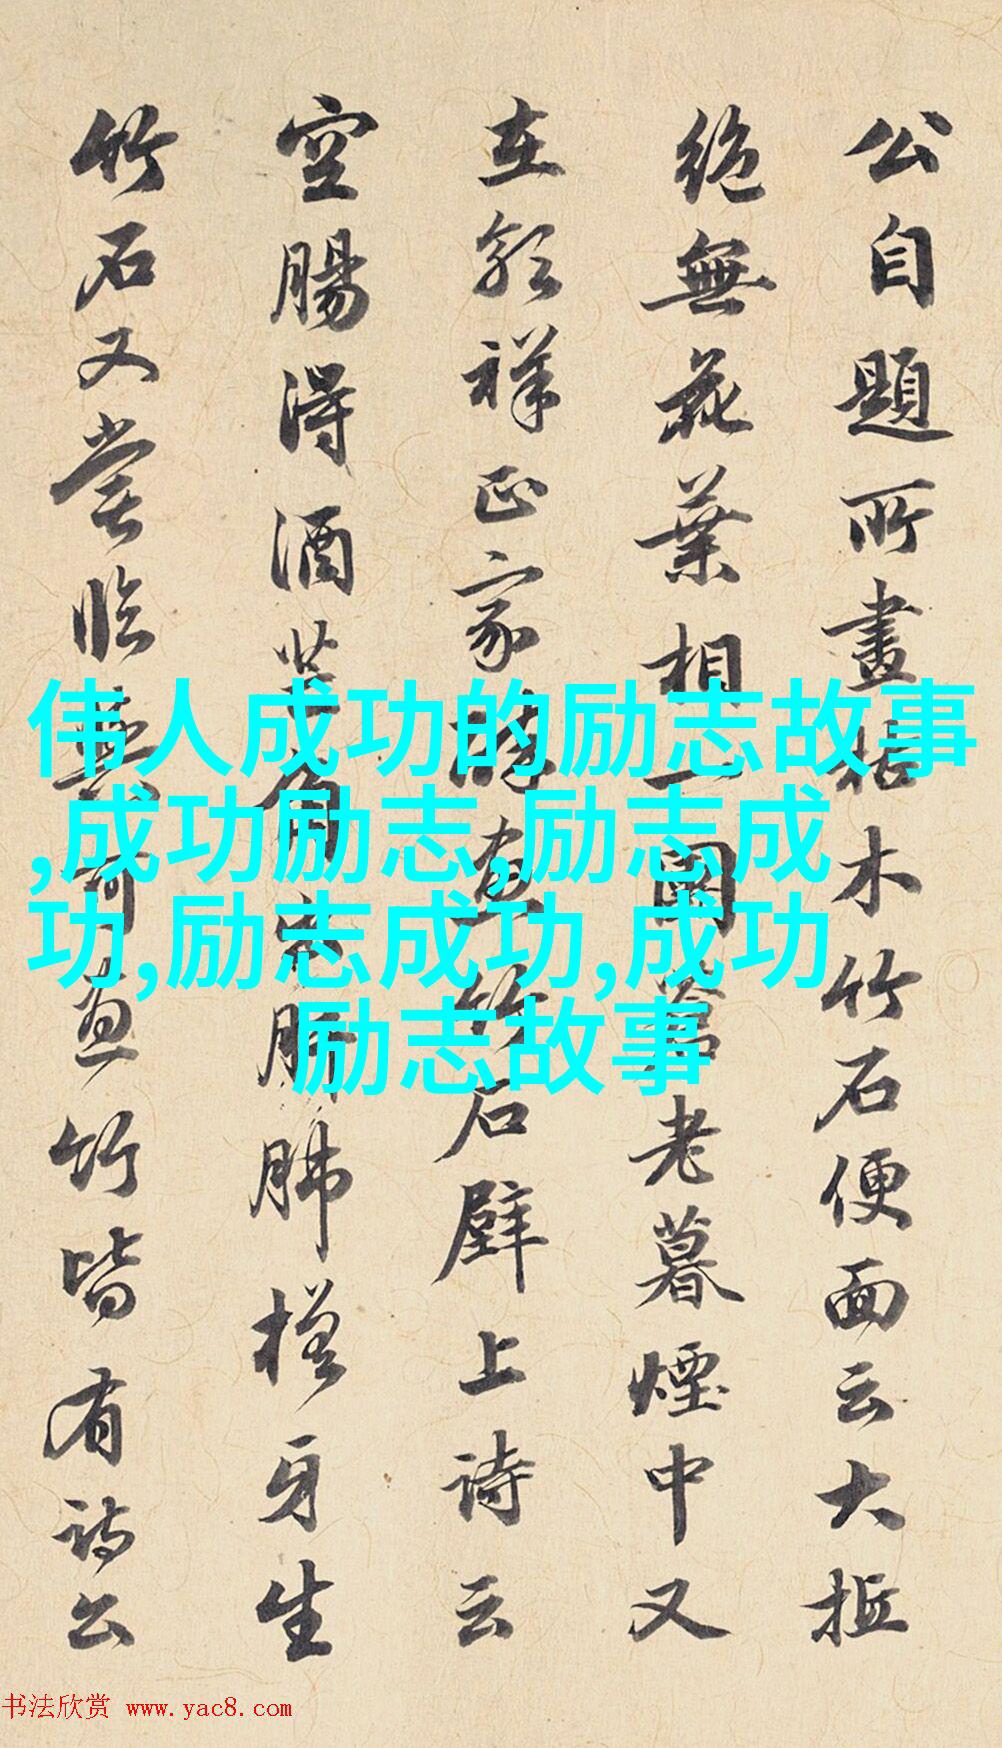 公自題所畫枯木竹石便面云大抵
絶無花葉相一團蒼老暮煙中又
在郭祥正家醉畫竹石壁上詩云
空腸得酒芒角出肝肺槎牙生
竹石又嘗臨無可畫竹皆有詩公
伟人成功的励志故事
,成功励志,励志成
功,励志成功,成功
励志故事
书法欣赏 www.yac8.com